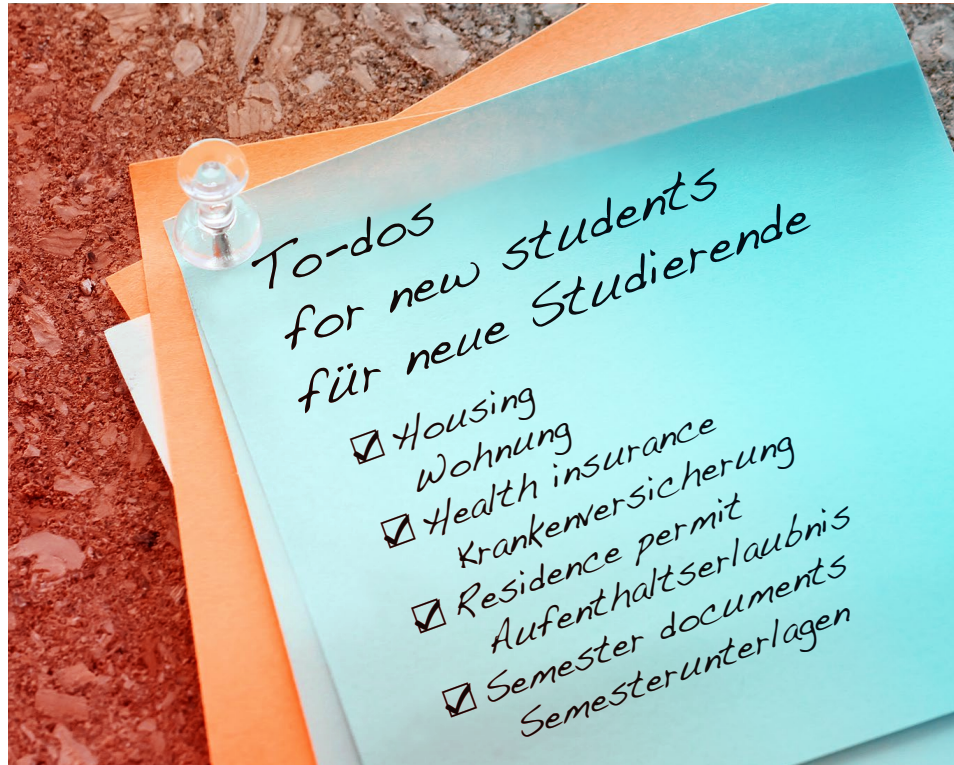 To-dos
for new students
für neue Studierende
☑ Housing
Wohnung
☑ Health insurance
Krankenversicherung
☑ Residence permit
Aufenthaltserlaubnis
☑ Semester documents
Semesterunterlagen